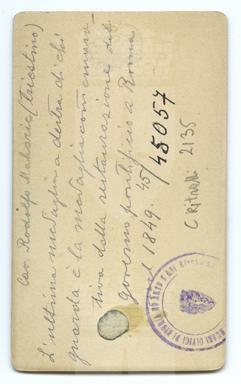 Cav. Rodolfo Mahorcic (triestino)
L'ultima medaglia a destra di chi
guarda è la medaglia commemora-
tiva della restaurazione del
governo pontificio a Roma
nel 1849.
45/45057
C Ritratti 2135
MUSEI CIVICI DI STORIA ED ARTE